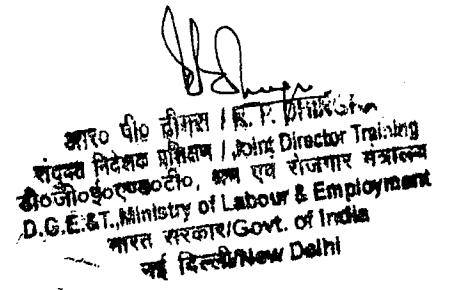 आर० पी० ढींगरा / R. P. DHINGRA
संयुक्त निदेशक प्रशिक्षण / Joint Director Training
डी०जी०ई०एण्ड०टी०, श्रम एवं रोजगार मंत्रालय
D.G.E.&T.,Ministry of Labour & Employment
भारत सरकार/Govt. of India
नई दिल्ली/New Delhi